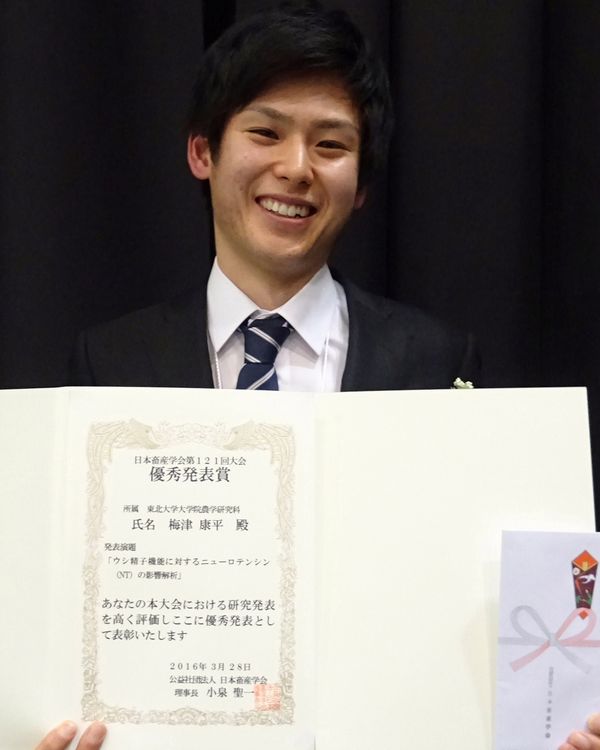 日本畜産学会第121回大会
優秀発表賞
所属 東北大学大学院農学研究科
氏名 梅津 康平 殿
発表演題
「ウシ精子機能に対するニューロテンシン
(NT)の影響解析」
あなたの本大会における研究発表
を高く評価しここに優秀発表とし
て表彰いたします
2016年3月28日
公益社団法人 日本畜産学会
理事長 小泉 聖一
日本畜産学会